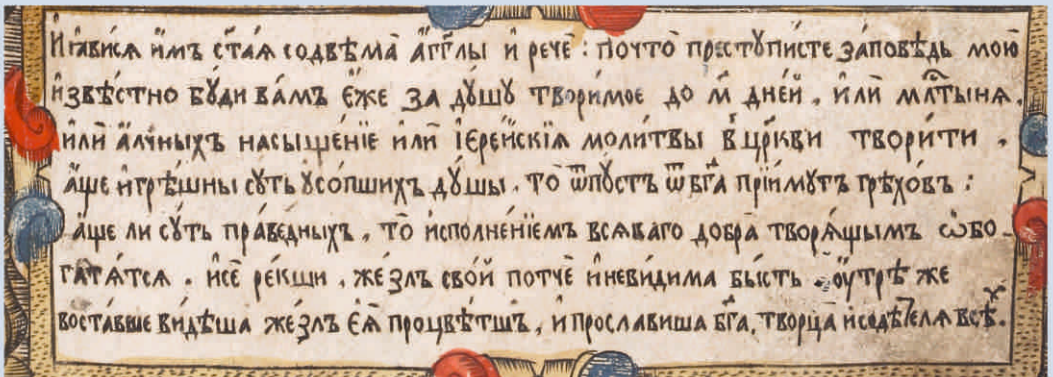 И҆ ꙗ҆ви́сѧ и҆̀мъ ст҃а́ѧ содвѣма̀ а҆́гг҃лы и҆̀ речѐ : почто̀ престꙋпи́сте за́повѣдь мою̀
и҆звѣ́стно бꙋ́ди ва́мъ є҆́же за дꙋ́шꙋ твори́мое до м҃ дне́й , и҆лѝ мл҃тынѧ .
и҆лѝ а҆́лчныхъ насыще́нїе и҆лѝ і҆ере́йскїѧ моли́твы в̾цр҃кви твори́ти .
а҆́ще и҆ грѣ́шны сꙋть ᲂу҆со́пшихъ дꙋ́шы . то̀ ѿпꙋстъ ѿ бг҃а прїи́мꙋтъ грѣхо́въ :
а҆́ще ли сꙋ́ть пра́ведныхъ , то̀ и҆сполне́нїемъ всѧ́каго добра̀ творѧ́щымъ ѡ҆бо-
гатѧ́тсѧ . и҆сѐ ре́кши , же́злъ сво́й потчѐ и҆неви́дима бы́сть . ᲂу҆трѣ̀ же
воста́вше ви́дѣша же́злъ є҆ѧ̀ процвѣ́тшъ , и҆ просла́виша бг҃а , творца̀ и҆содѣ́телѧ всѣ́х .